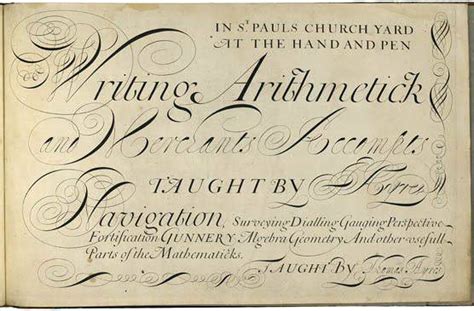 IN S.T PAULS CHURCH YARD
AT THE HAND AND PEN
Writing Arithmetick
and Merchants Accompts
TAUGHT BY Ayres
Navigation, Surveying Dialling Gauging Perspective
Fortification GUNNERY Algebra Geometry And other usefull
Parts of the Mathematicks.
TAUGHT BY Thomas Ayres